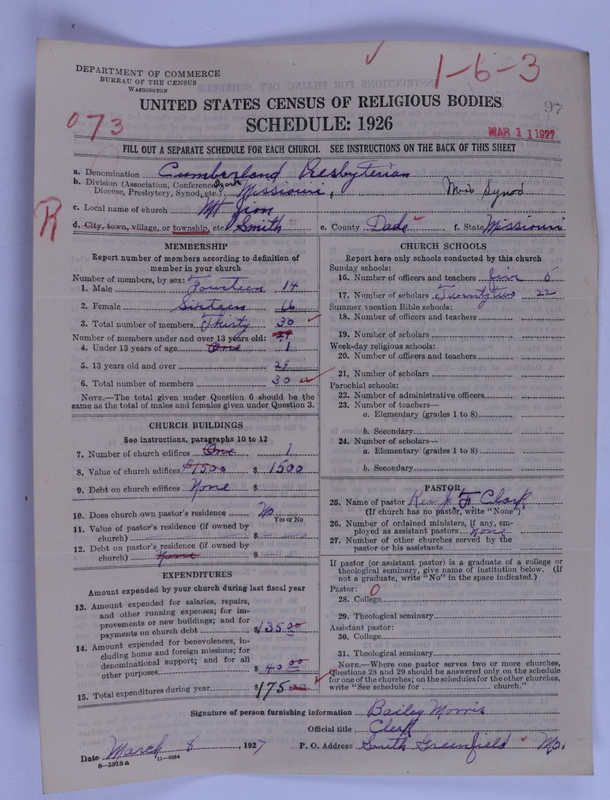 DEPARTMENT OF COMMERCE
BUREAU OF THE CENSUS
WASHINGTON
1-6-3
97
UNITED STATES CENSUS OF RELIGIOUS BODIES
SCHEDULE: 1926
073
MAR 11 1927
FILL OUT A SEPARATE SCHEDULE FOR EACH CHURCH. SEE INSTRUCTIONS ON THE BACK OF THIS SHEET
a. Denomination Cumberland Presbyterian
b. Division (Association, Conference, Diocese, Presbytery, Synod, etc.) Ozark Missouri, Mo Synod
c. Local name of church Mt Zion
R
d. City, town, village, or township, etc. Smith e. County Dade f. State Missouri
MEMBERSHIP
Report number of members according to definition of
member in your church
Number of members, by sex:
1. Male Fourteen 14
2. Female Sixteen 16
3. Total number of members Thirty 30
Number of members under and over 13 years old: 29
4. Under 13 years of age One 1
5. 13 years old and over 29
6. Total number of members 30
NOTE.—The total given under Question 6 should be
same as the total of males and females given under Question 3.
CHURCH BUILDINGS
See instructions, paragraphs 10 to 12
7. Number of church edifices One 1
8. Value of church edifices $1500 $ 1500
9. Debt on church edifices None $
10. Does church own pastor's residence? No
Yes or No
11. Value of pastor's residence (if owned by
church) $
12. Debt on pastor's residence (if owned by
church) None $
EXPENDITURES
Amount expended by your church during last fiscal year
13. Amount expended for salaries, repairs,
and other running expenses; for im-
provements or new buildings; and for
payments on church debt $135.00
14. Amount expended for benevolences, in-
cluding home and foreign missions; for
denominational support; and for all
other purposes $ 40.00
15. Total expenditures during year $175.00
CHURCH SCHOOLS
Report here only schools conducted by this church
Sunday schools:
16. Number of officers and teachers five 5
17. Number of scholars Twenty two 22
Summer vacation Bible schools:
18. Number of officers and teachers
19. Number of scholars
Week-day religious schools:
20. Number of officers and teachers
21. Number of scholars
Parochial schools:
22. Number of administrative officers
23. Number of teachers—
a. Elementary (grades 1 to 8)
b. Secondary
24. Number of scholars—
a. Elementary (grades 1 to 8)
b. Secondary
PASTOR
25. Name of pastor Rev Clark
(If church has no pastor, write "None")
26. Number of ordained ministers, if any, em-
ployed as assistant pastors None
27. Number of other churches served by the
pastor or his assistants
If pastor (or assistant pastor) is a graduate of a college or
theological seminary, give name of institution below. (If
not a graduate, write "No" in the space indicated.)
Pastor: 0
28. College
29. Theological seminary
Assistant pastor:
30. College
31. Theological seminary
NOTE.—Where one pastor serves two or more churches,
Questions 28 and 29 should be answered only on the schedule
for one of the churches; on the schedules for the other churches,
write "See schedule for church."
Signature of person furnishing information Bailey Morris
Official title Clerk
Date March 8, 1927 P. O. Address South Greenfield Mo.
8-5318 a 11-9084